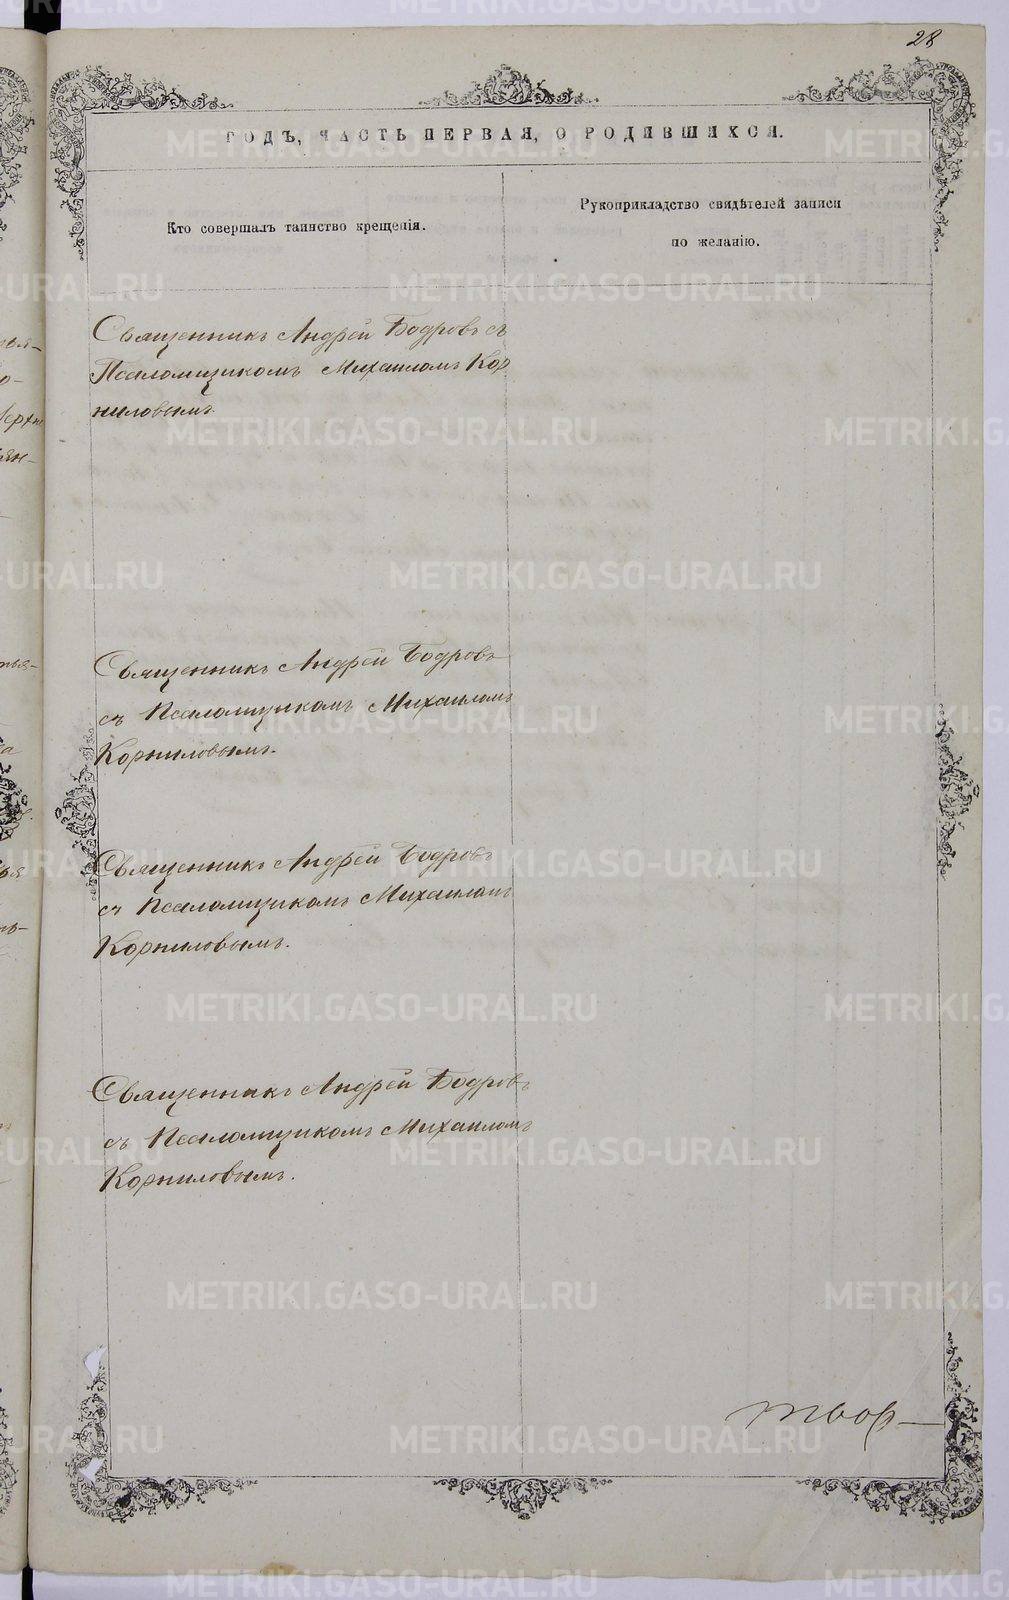 28
ГОДЪ, ЧАСТЬ ПЕРВАЯ, О РОДИВШИХСЯ.
Кто совершалъ таинство крещенія.
Рукоприкладство свидѣтелей записи
по желанію.
Священникъ Андрей Бодровъ съ
Псаломщикомъ Михаиломъ Кор
ниловымъ.
Священникъ Андрей Бодровъ
съ Псаломщикомъ Михаиломъ
Корниловымъ.
Священникъ Андрей Бодровъ
съ Псаломщикомъ Михаиломъ
Корниловымъ.
Священникъ Андрей Бодровъ
съ Псаломщикомъ Михаиломъ
Корниловымъ.
METRIKI.GASO-URAL.RU